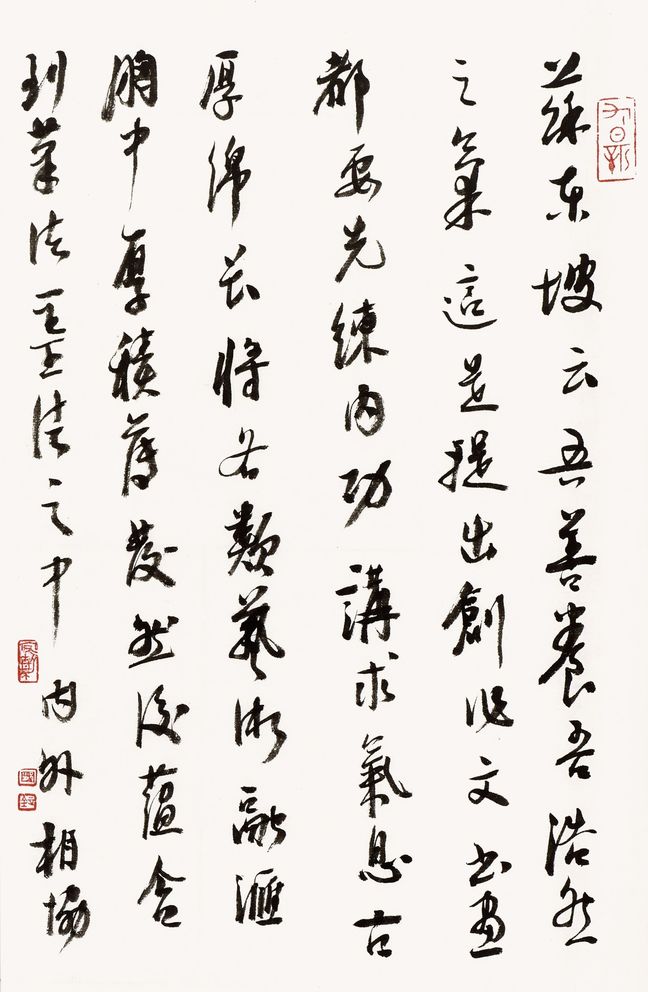 蘇東坡云吾善養吾浩然
之氣這是提出創作文書畫
都要先練內功講求氣息古
厚綿長將各類藝術融匯
胸中厚積薄發然後蘊含
到筆法墨法之中內外相協
又日新